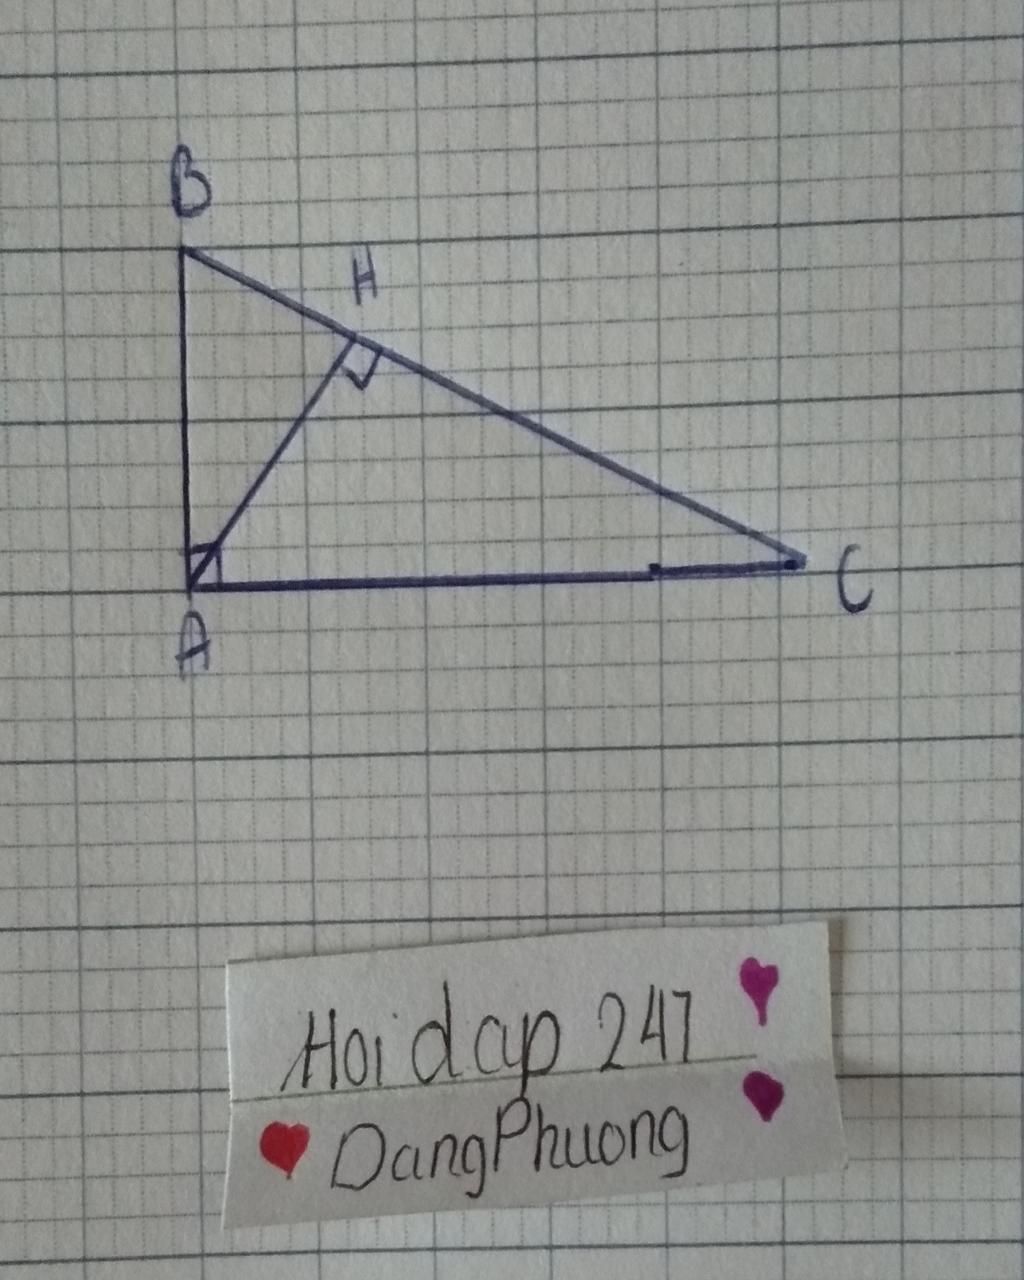 B
H
A
C
Hoidap 247
DangPhuong